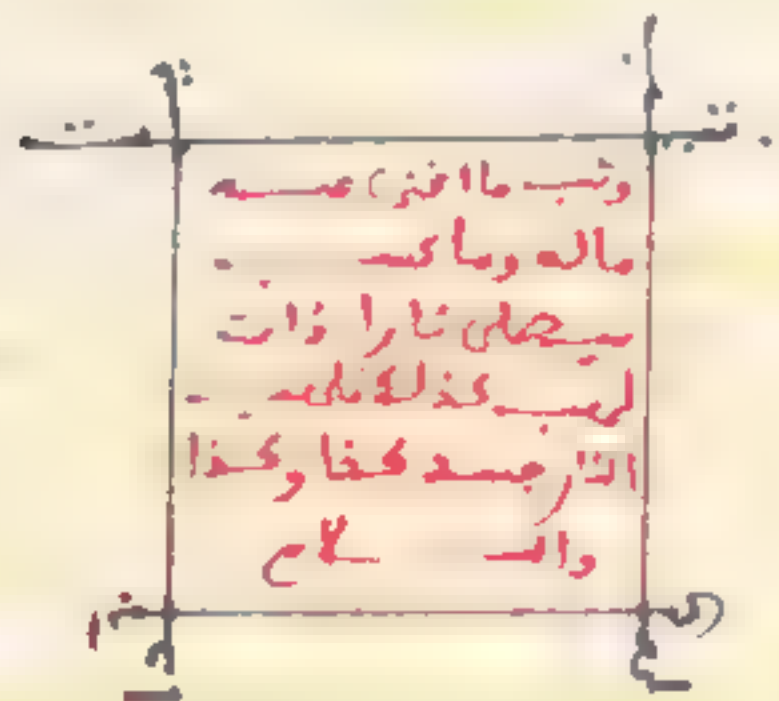 وتب ما اغنى عنه
ماله وما كسب
سيصلى نارا ذات
لهب كذلك تلهب
النار جسد كذا وكذا
والسلام